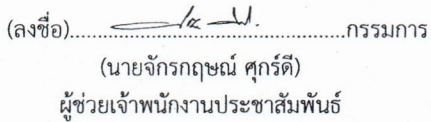 (ลงชื่อ)................................................กรรมการ
(นายจักรกฤษณ์ ศุกร์ดี)
ผู้ช่วยเจ้าพนักงานประชาสัมพันธ์